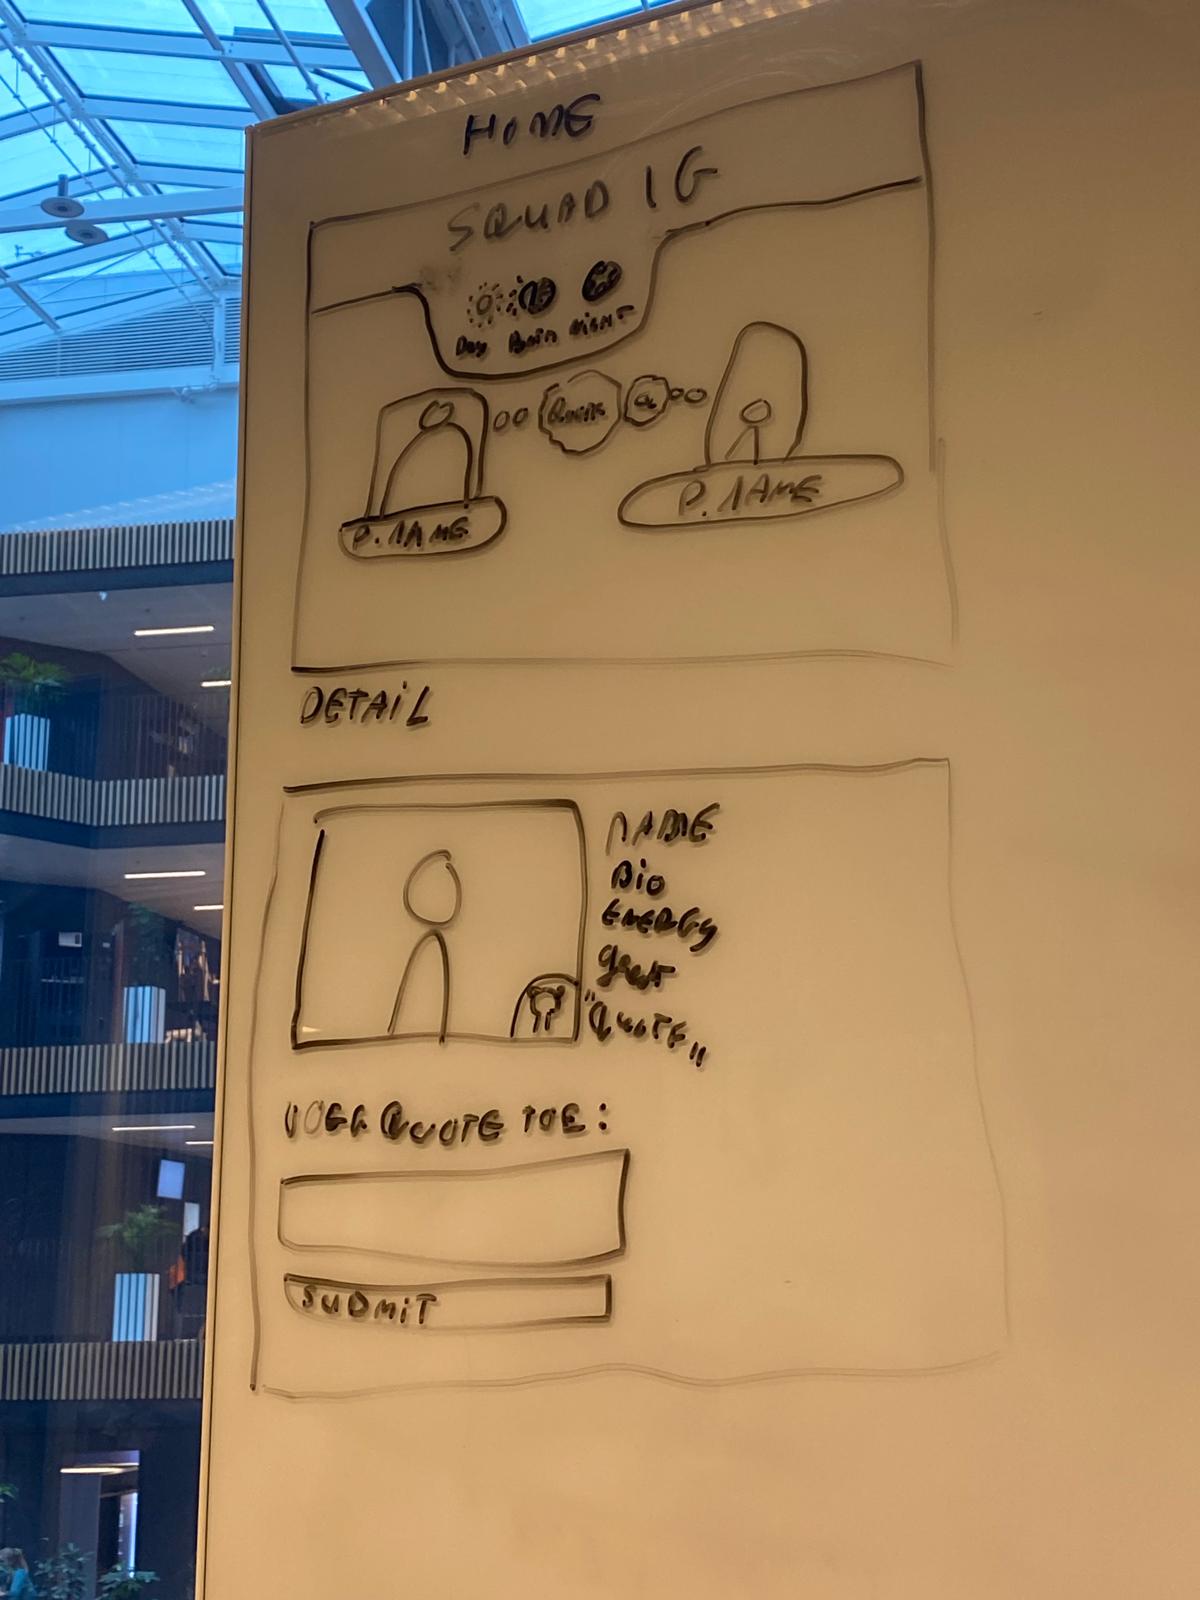 HOME
SQUAD 1G
Day Both Night
Quote Q
P. NAME
P. NAME
DETAIL
NAME
Bio
ENERGY
"QUOTE"
VOEG QUOTE TOE:
SUBMIT